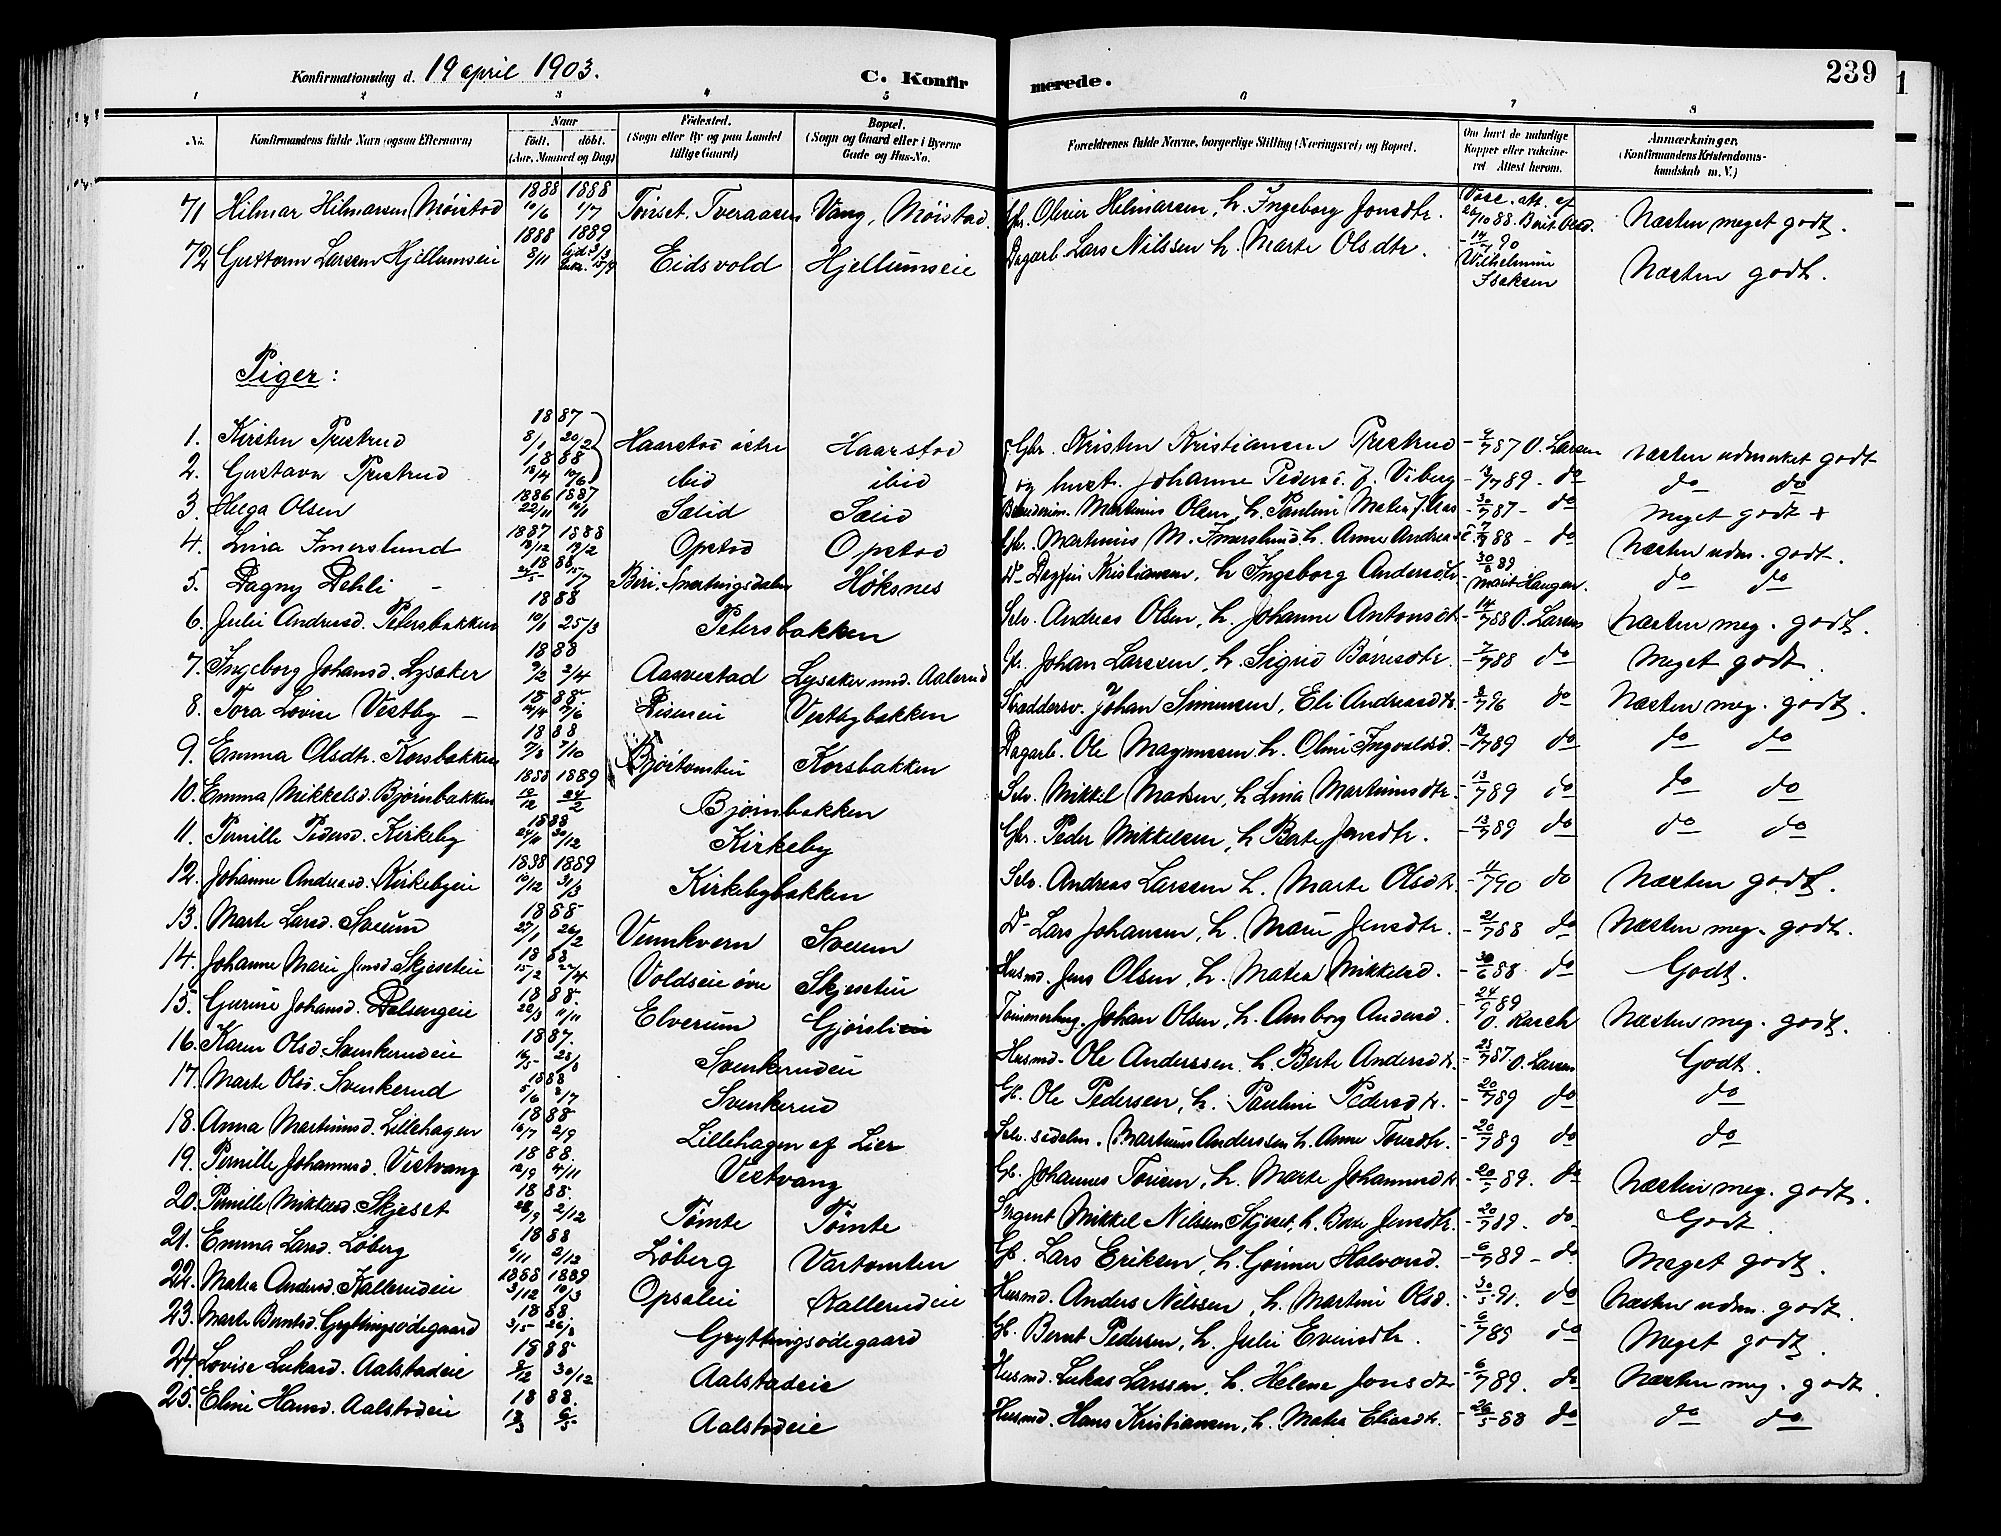 Konfirmationsdag d. 19 april 1903. C. Konfir merede. 239
1 2 3 4 5 6 7 8
No. Konfirmandens fulde Navn (ogsaa Efternavn) Naar Født. døbt. (Aar, Maaned og Dag) Fødested. (Sogn eller By og paa Landet tillige Gaard) Bopæl. (Sogn og Gaard eller i Byerne Gade og Hus-No. Forældrenes fulde Navne, borgerlige Stilling (Næringsvei) og Bopæl. Om havt de naturlige Kopper eller vaccineret Attest herom. Anmærkninger. (Konfirmandens Kristendomskundskab m. V.)
71 Hilmar Hilmarsen Møistad 1888 10/6 1888 1/7 Tønset, Tveraasen Vang, Møistad. Oliver Hilmarsen, h. Ingeborg Jonsdtr. Vacc. att. af 26/10 88. Berit Næsten meget godt.
72 Guttorm Larsen Hjellumseie 1888 8/11 1889 Eidsvold Hjellumseie Dagarb. Lars Nilssen h. Marte Olsdtr. 90 Wilhelmine Isaksen Næsten godt.
Piger:
1. Kirsten Prestrud 1887 8/1 20/2 Haarstad østre Haarstad Gbr. Kristen Kristiansen Prestrud 87 O. Larsen næsten udmerket godt
2. Gustava Prestrud 1888 13/4 10/6 ibid ibid og hust. Johanne Pedersd. f. Viberg 89. do do do
3. Helga Olsen 1886 22/11 1887 Sælid Sælid Martinus Olsen, h. Pauline 30/7 87 - do Meget godt +
4. Lina Imerslund 1887 12/12 1888 12/2 Opstad Opstad Gbr. Martinius M. Imerslund, h. Anne 88 - do Næsten udm. godt.
5. Dagny Dehli - 1888 15/7 Biri, Snertingsdalen Høksnes Do Dagfin Kristiansen, h. Ingeborg Andersdtr. 89 Marit Haugen. do do
6. Julie Andreasd. Petersbakken 1888 25/3 Petersbakken Selv. Andreas Olsen, h. Johanne Antonsdtr. 14/7 88 O. Larsen Næsten meg. godt.
7. Ingeborg Johansd. Lysaker 1888 9/2 2/4 Aasvestad Lysaker und. Aalerud Johan Larssen, h. Sigrid Børresdtr. 88 do Meget godt.
8. Tora Lovise Vestby - 1888 Disenei Vestbybakken Skræddersv. Johan Simensen, Eli Andreasdtr. 96 do Næsten meg. godt.
9. Emma Olsdtr. Korsbakken 1888 7/8 7/10 Bjørtomten Korsbakken Dagarb. Ole Magnussen h. Oline Ingvaldsd. 13/7 89 do do do
10. Emma Mikkelsd. Bjørnbakken 1888 12/12 1889 24/2 Bjørnbakken Selv. Mikkel Madsen, h Lina Martinusdtr. 13/7 89 do do do
11. Pernille Pedersd. Kirkeby 1888 24/11 30/12 Kirkeby Gbr. Peder Mikkelsen, h Berte Jensdtr. 13/7 89 do do do
12. Johanne Andreasd. Kirkebyeie 1888 10/12 1889 31/3 Kirkebybakken Selv. Andreas Larssen h. Marte Olsdtr. 90 do Næsten godt.
13. Marte Larsd. Sveum 1888 27/1 26/2 Vennkvern Sveum Do Lars Johansen, h. Marie Jensdtr. 21/7 88 do Næsten meg. godt.
14. Johanne Marie Jensd. Skjeseteie 1888 15/2 22/4 Voldseie øvre Skjeseteie Husmd. Jens Olsen, h. Matea Mikkelsd. 30/6 88. do Godt.
15. Gurine Johansd. Dalsengeie 1888. 22/3 11/11 Elverum Gjørslieie Tømmerhug. Johan Olsen, h. Amborg Andersd. 24/6 89 O. Rasch Næsten meg. godt.
16. Karen Olsd. Svenkerudeie 1887. 16/5 28/8 Svenkerudeie Husmd. Ole Anderssen h. Berte Andersdtr. 23/7 87. O. Larsen Godt.
17. Marte Olsd. Svenkerud 1888 5/6 Svenkerud Ole Pedersen, h. Pauline Pedersdtr. 20/7 89 do do
18. Anna Martinusd. Lillehagen 1888 2/9 Lillehagen af Lier Selv. Martinus Anderssen h. Anne 20/7 89 do do
19. Pernille Johannesd. Vestvang 1888. 12/9 4/11 Vestvang Johannes h. Marte Johannesdtr. 20/7 89. do Næsten meg. godt.
20. Pernille Mikkelsd. Skjeset 1888. 2/12 Tømte Tømte Sergent Mikkel Nilsen Skjeset, h. Berte Jensdtr. 20/7 89. do Godt.
21. Emma Larsd. Løberg 1888 6/11 2/12 Løberg Vartomten Lars Eriksen, h. Gunner Halvorsd. 6/7 89 - do Meget godt.
22. Matea Andersd. Kallerudeie 1888 3/12 1889 10/3 Opsaleie Kallerudeie Husmd. Anders Nilssen, h. Martine Olsd. 30/5 91. do Næsten udm. godt.
23. Marte Berntsd. Gryttingsødegaard 1888 3/5 26/8 Gryttingsødegaard Bernt Pedersen, h. Julie Evensdtr. 6/7 89 do Meget godt.
24. Lovise Lukasd. Aalstadeie 1888 8/12 30/12 Aalstadeie Husmd. Lukas Larssen, h. Helene Jonsdtr. 6/7 89. do Næsten meg. godt.
25. Eline Hansd. Aalstadeie 1888. 6/5 Aalstadeie Husmd. Hans Kristiansen, h. Matea Eliasdtr. 26/5 88 do do do